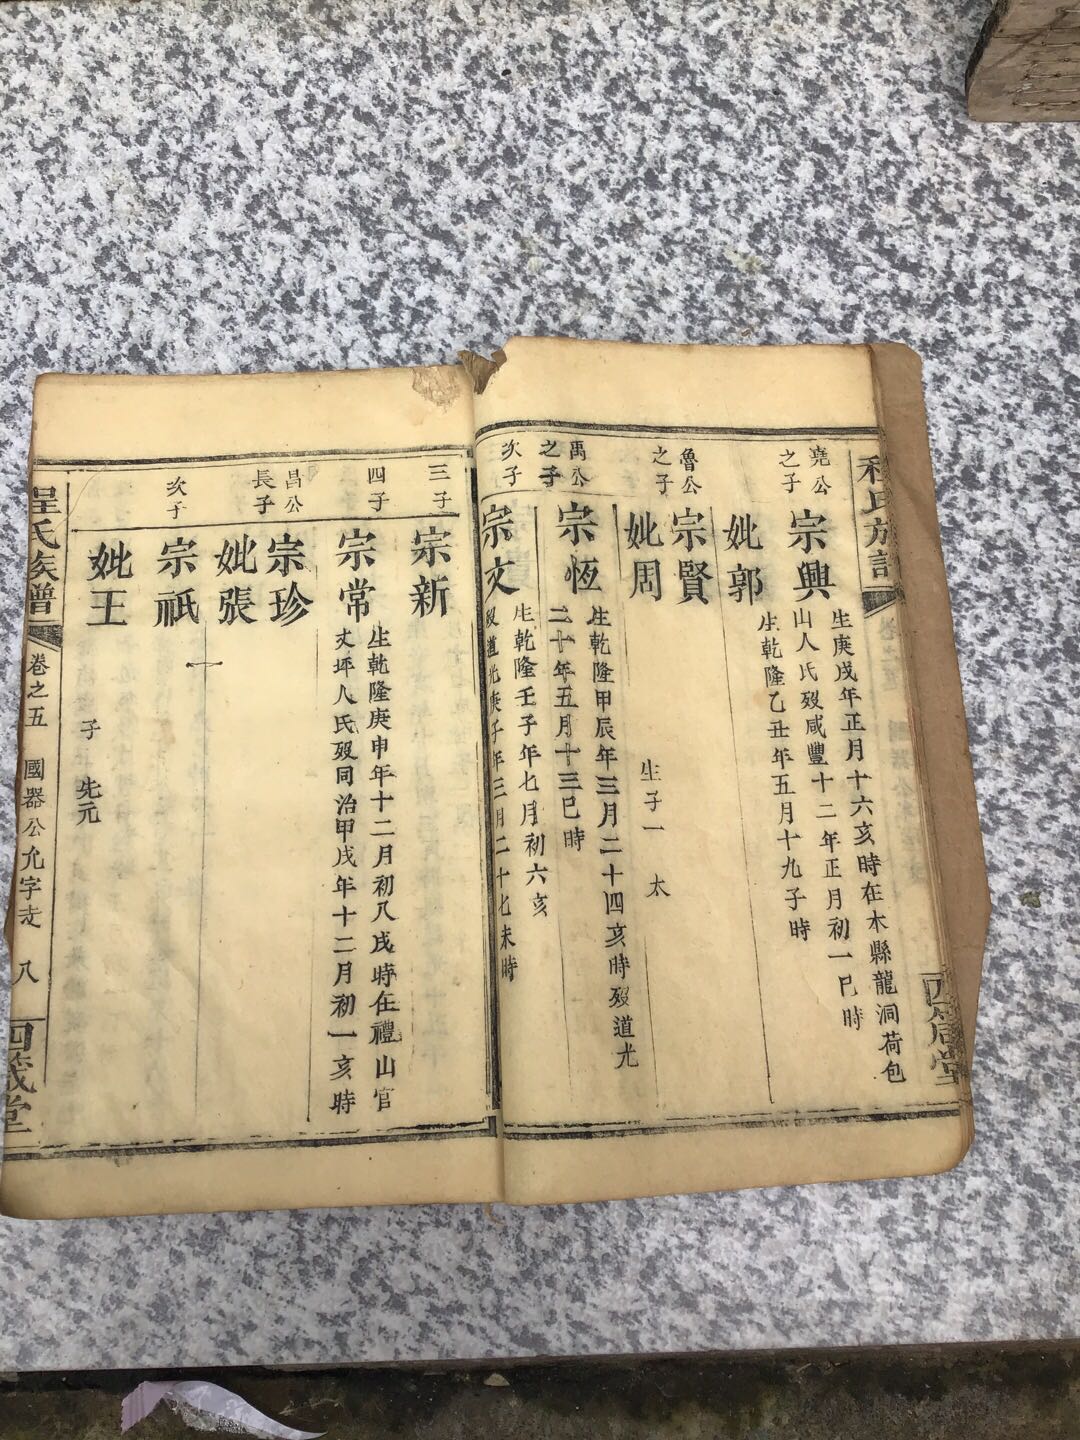 氏族譜
堯公之子
宗興
生庚戌年正月十六亥時在木縣龍洞荷包
山人氏歿咸豐十二年正月初一巳時
妣郭
生乾隆乙丑年五月十九子時
魯公之子
宗賢
妣周
生子一 太
禹公之子
宗恆
生乾隆甲辰年三月二十四亥時歿道光
二十年五月十三巳時
次子
宗文
生乾隆壬子年七月初六亥
歿道光庚子年三月二十七未時
三子
宗新
四子
宗常
生乾隆庚申年十二月初八戌時在禮山官
丈坪人氏歿同治甲戌年十二月初一亥時
昌公長子
宗珍
妣張
次子
宗祇
妣王
子 先元
程氏族譜
卷之五 國器公允字支 八
四箴堂